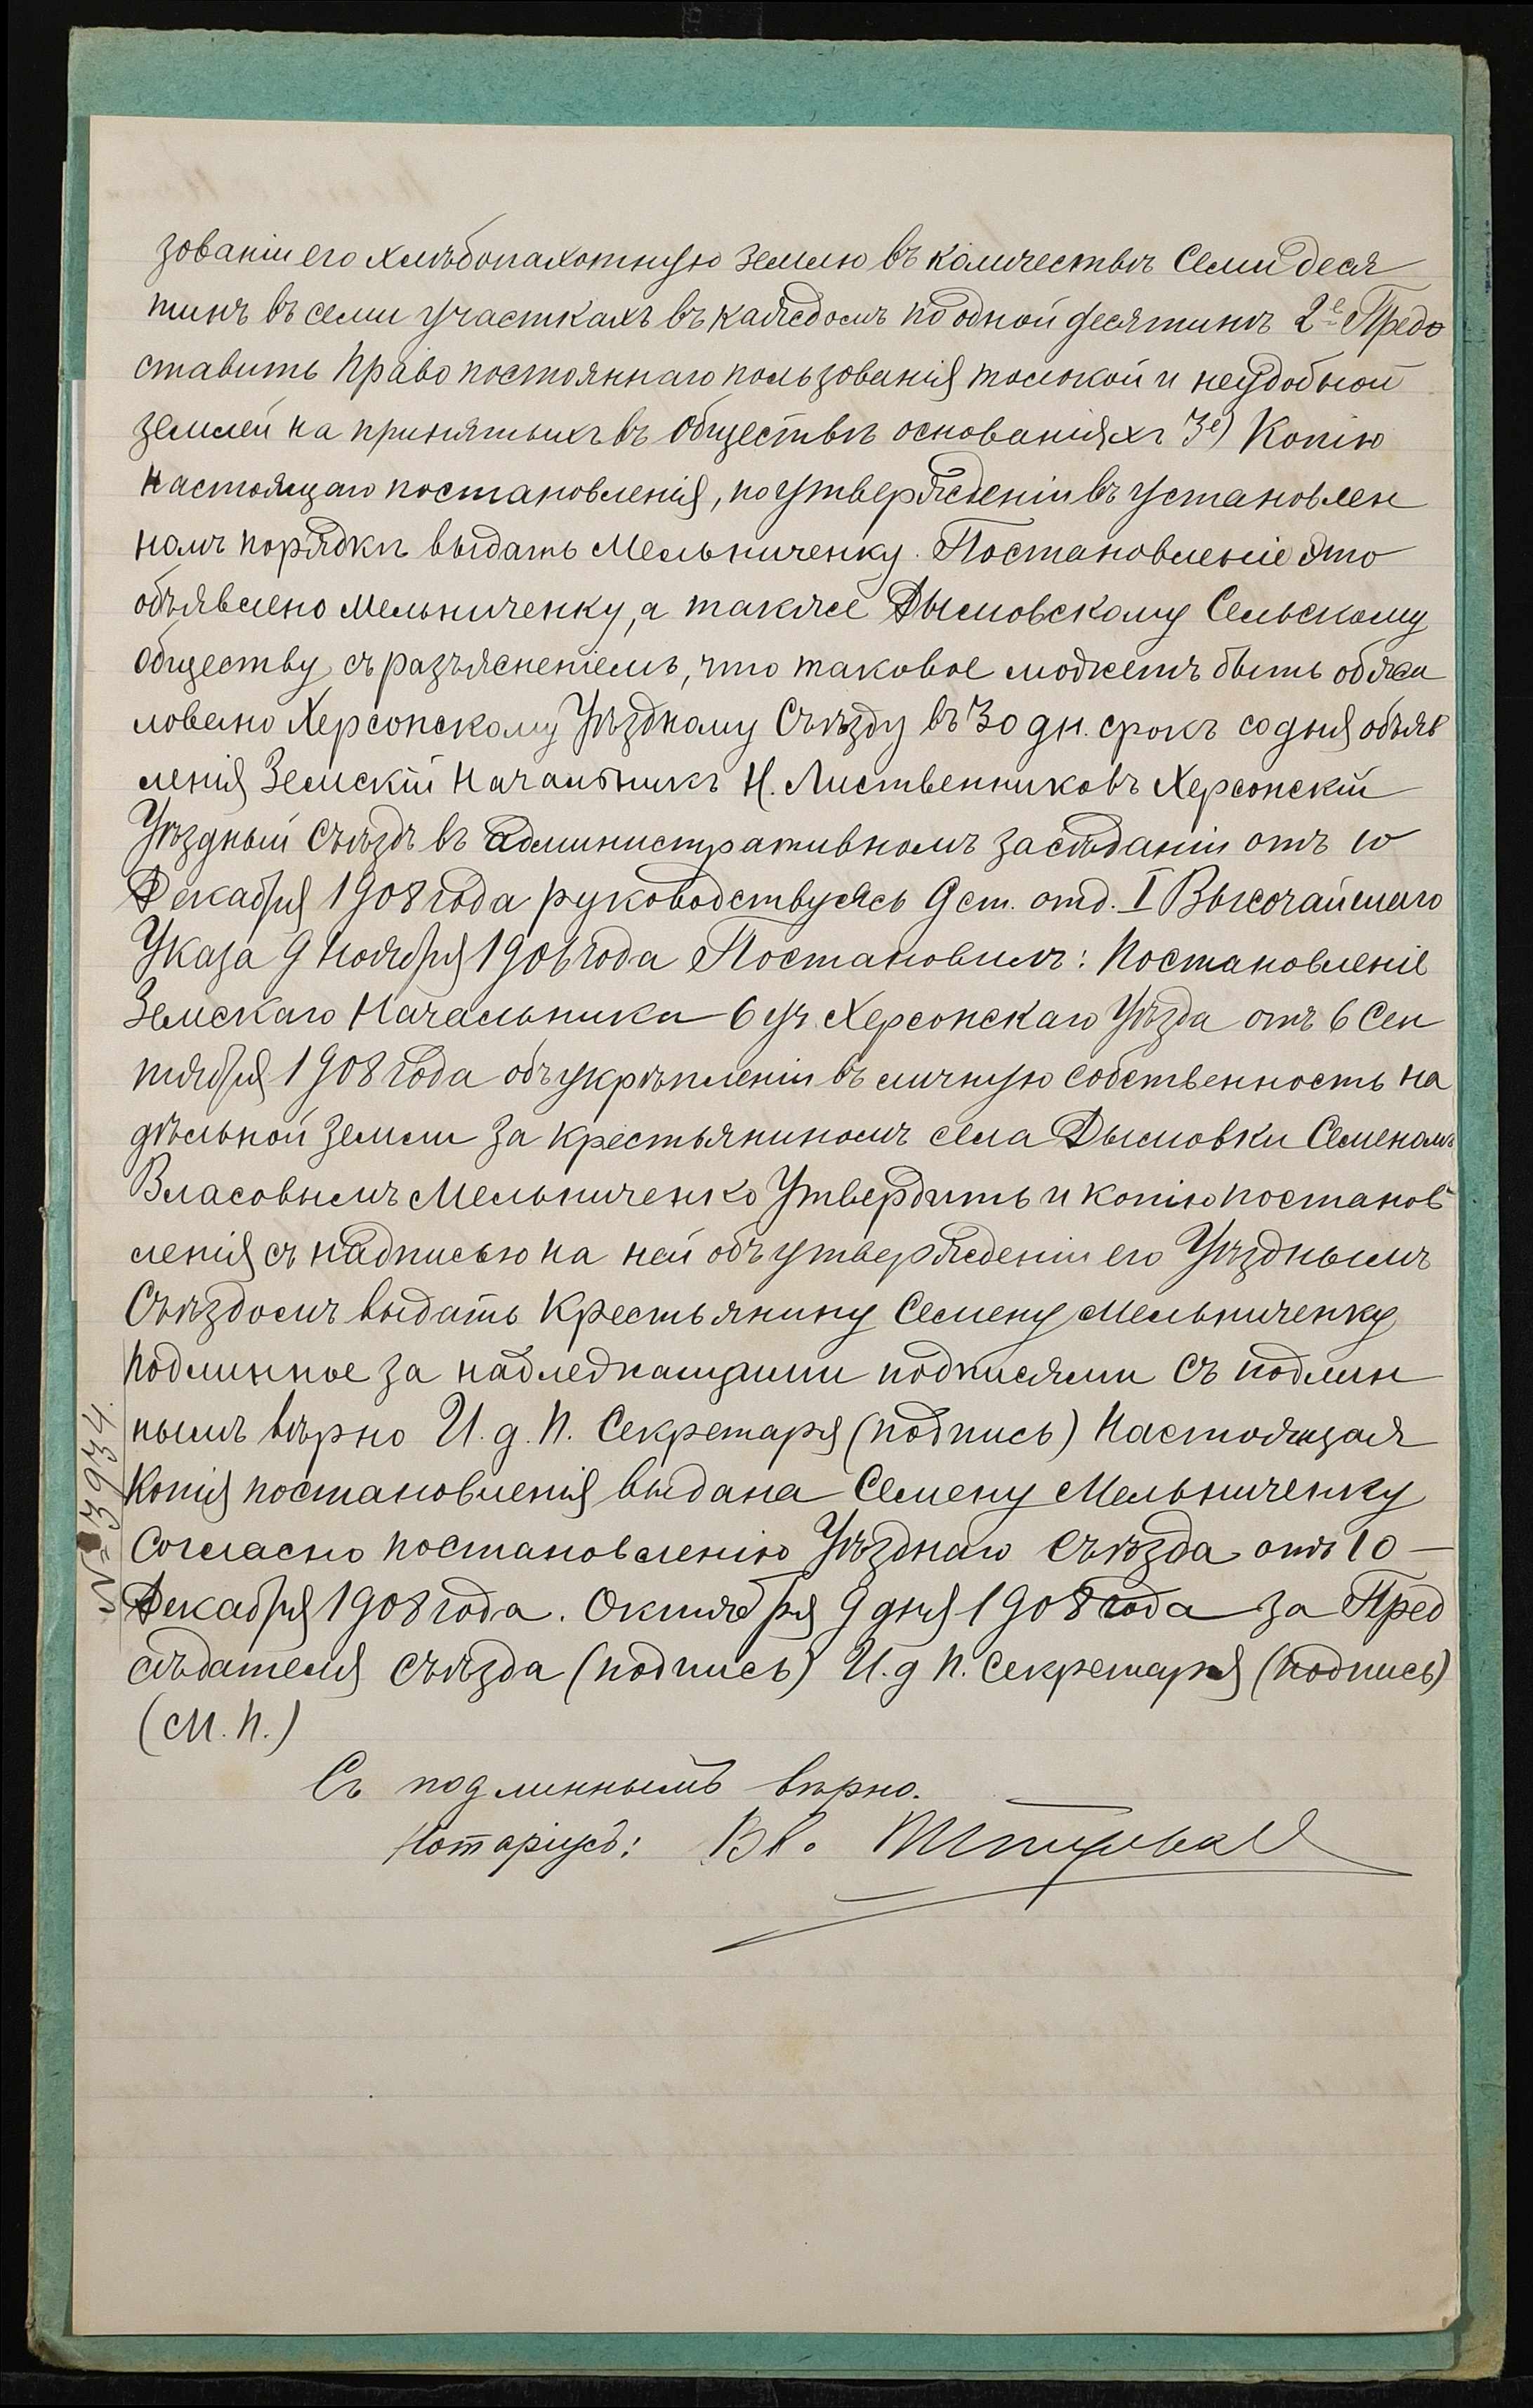 зованіи его хлѣбопахотную землю въ количествѣ Семи деся
тинъ въ семи участкахъ въ каждомъ по одной десятинѣ 2е Предо
ставить право постояннаго пользованія толокой и неудобной
землей на принятыхъ въ обществѣ основаніяхъ 3е) Копію
настоящаго постановленія, по утвержденіи въ установлен
номъ порядкѣ выдать Мельниченку. Постановленіе это
объявлено Мельниченку, а также Дымовскому Сельскому
обществу съ разъясненіемъ, что таковое можетъ быть обжа
ловано Херсонскому Уѣздному Съѣзду въ 30 дн. срокъ со дня объяв
ленія Земскій Начальникъ Н. Лиственниковъ Херсонскій
Уѣздный Съѣздъ въ административномъ засѣданіи отъ 10
Декабря 1908 года руководствуясь 9 ст. отд. I Высочайшаго
Указа 9 Ноября 1906 года Постановилъ: Постановленіе
Земскаго Начальника 6 уч. Херсонскаго Уѣзда отъ 6 Сен
тября 1908 года объ укрѣпленіи въ личную собственность на
дѣльной земли за крестьяниномъ села Дымовки Семеномъ
Власовымъ Мельниченко Утвердить и копію постанов
ленія съ надписью на ней объ утвержденіи его Уѣзднымъ
Съѣздомъ выдать Крестьянину Семену Мельниченку
подлинное за надлежащими подписями Съ подлин
нымъ вѣрно И. д. П. Секретаря (подпись) Настоящая
Копія постановленія выдана Семену Мельниченку
Согласно постановленію Уѣзднаго Съѣзда отъ 10 —
Декабря 1908 года. Октября 9 дня 1908 года за Пред
сѣдателя съѣзда (подпись) И. д П. Секретаря (подпись)
(М. П.)
№ 3934.
Съ подлиннымъ вѣрно.
Нотаріусъ: Вл.